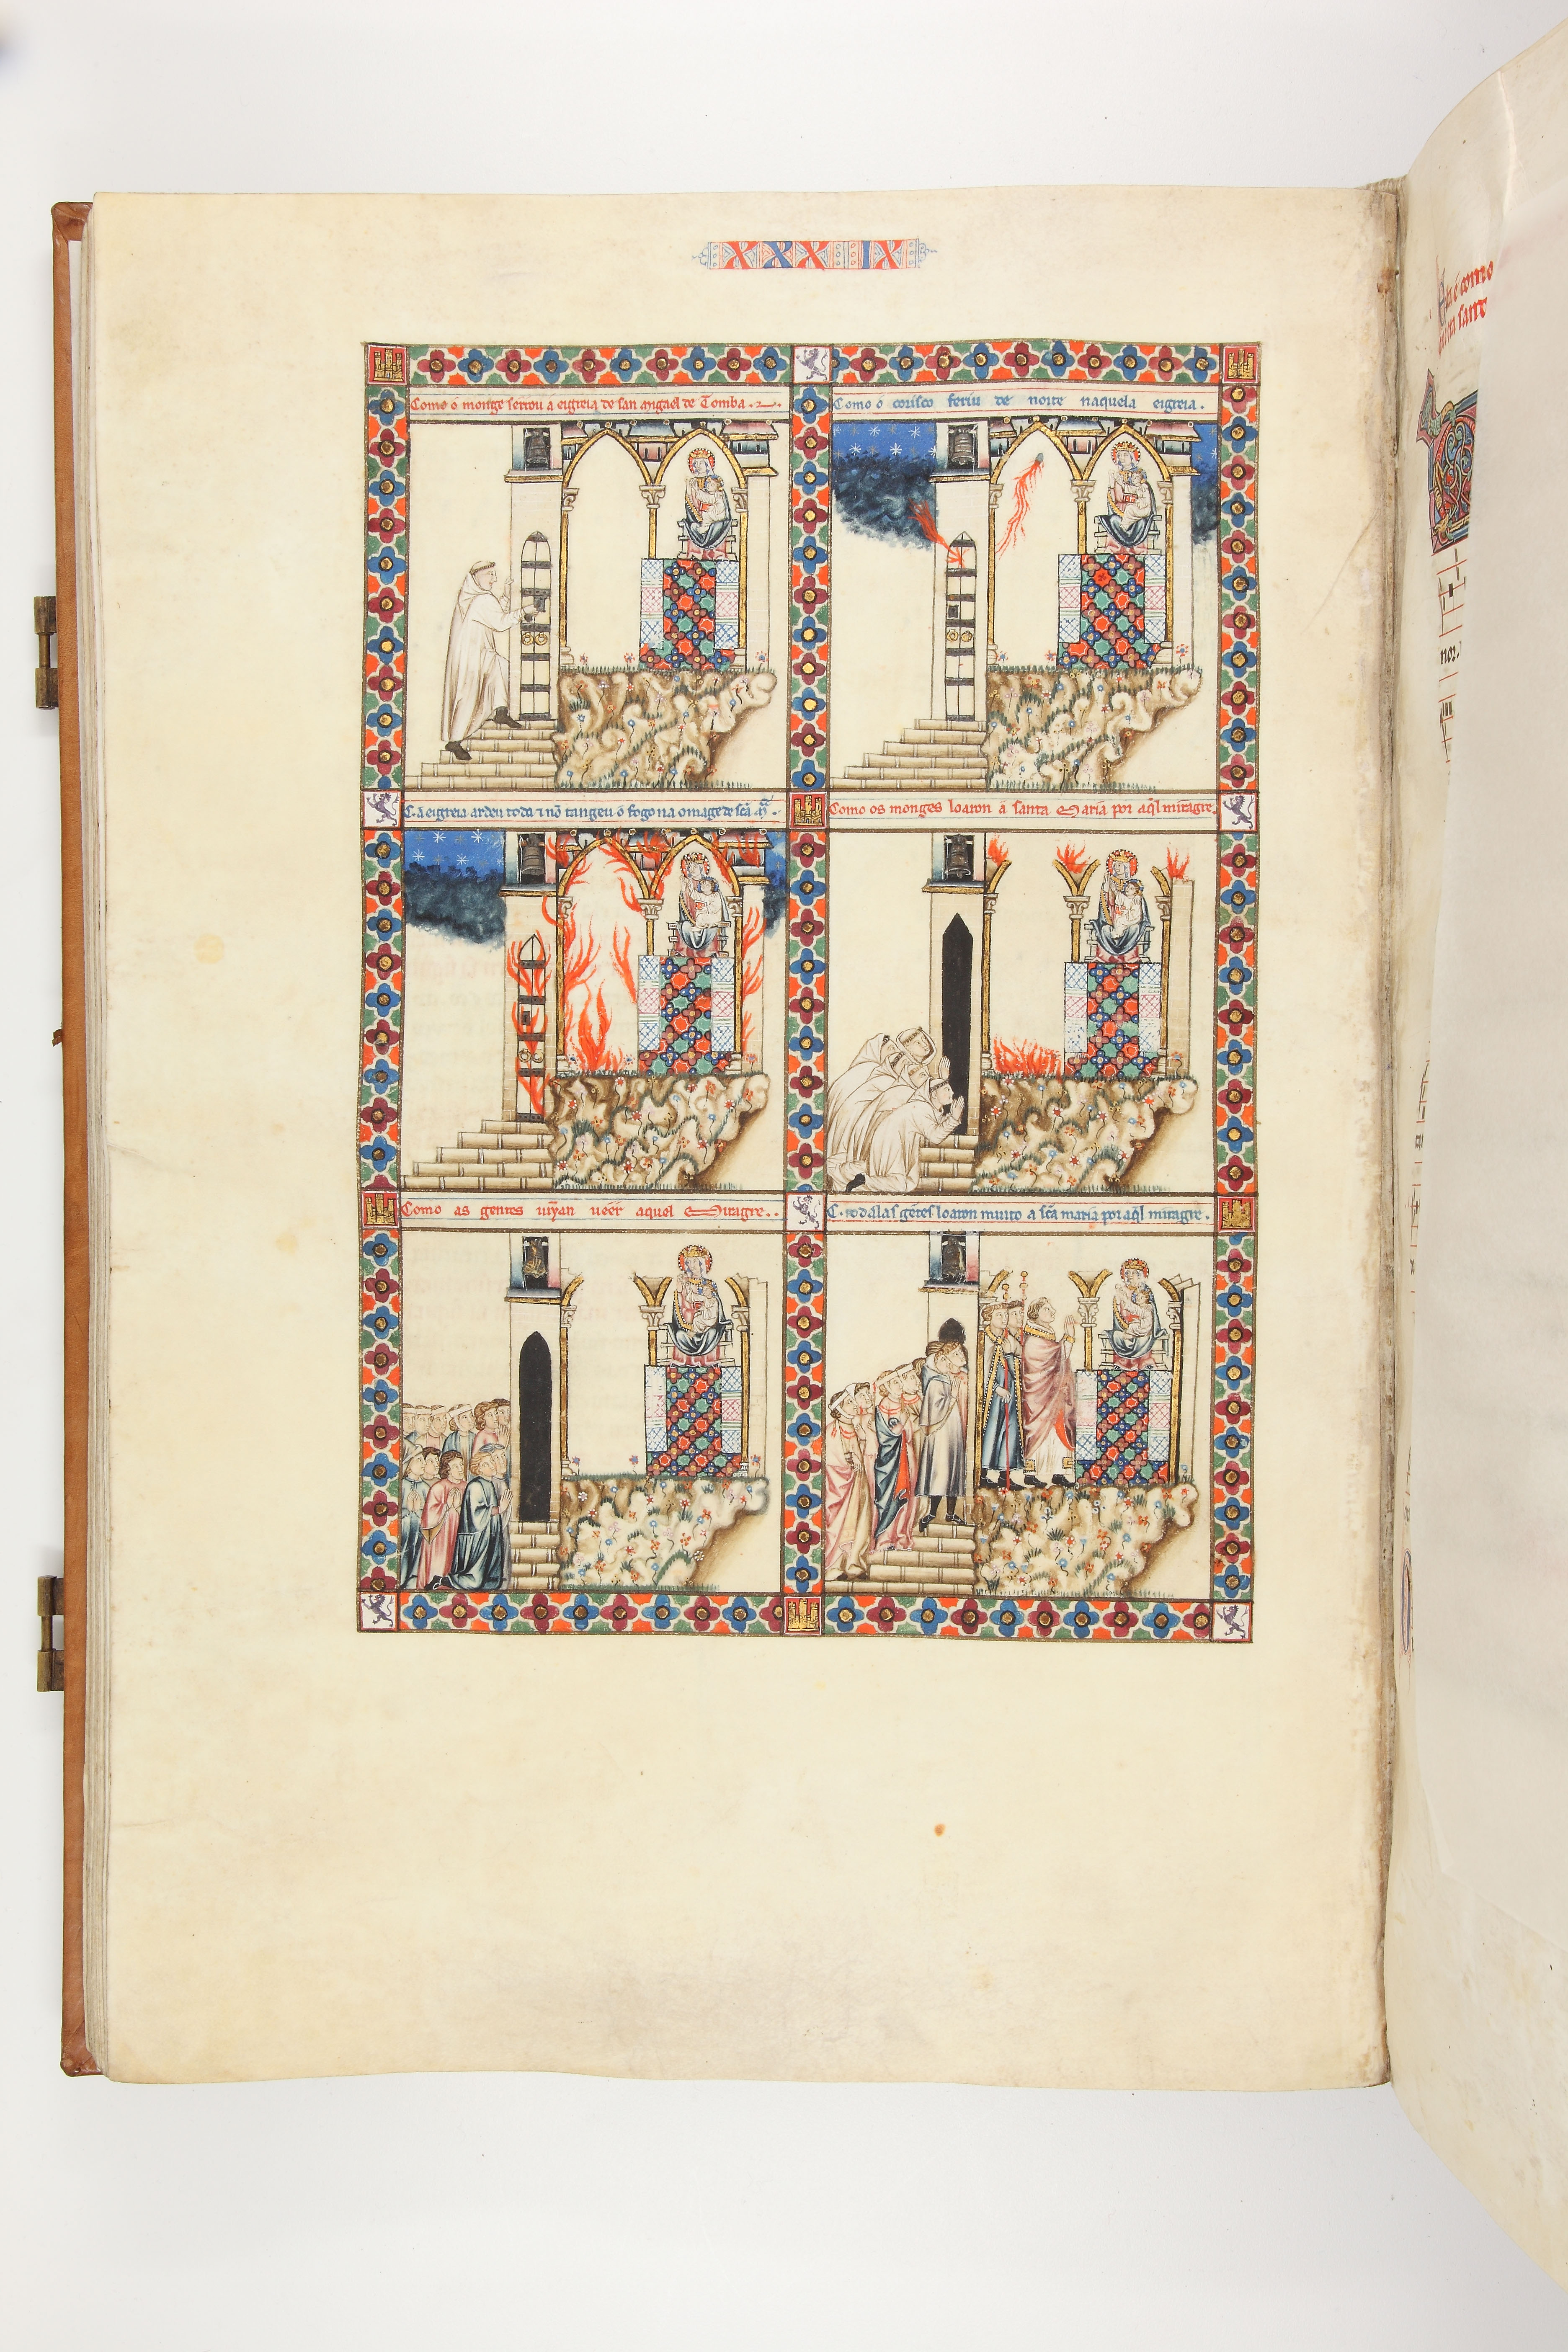 XXXIX
Como o monge serrou a eigreia de san Migael de Tomba.
Como o corisco feriu de noite naquela eigreia.
C. a eigreia ardeu toda ⁊ nõ tangeu o fogo na omage de sc̃a Mª.
Como os monges loaron a santa Maria por aq̃l miragre.
Como as gentes uĩyan ueer aquel Miragre.
C. todalas gẽtes loaron muito a sc̃a maria por aq̃l miragre.
como